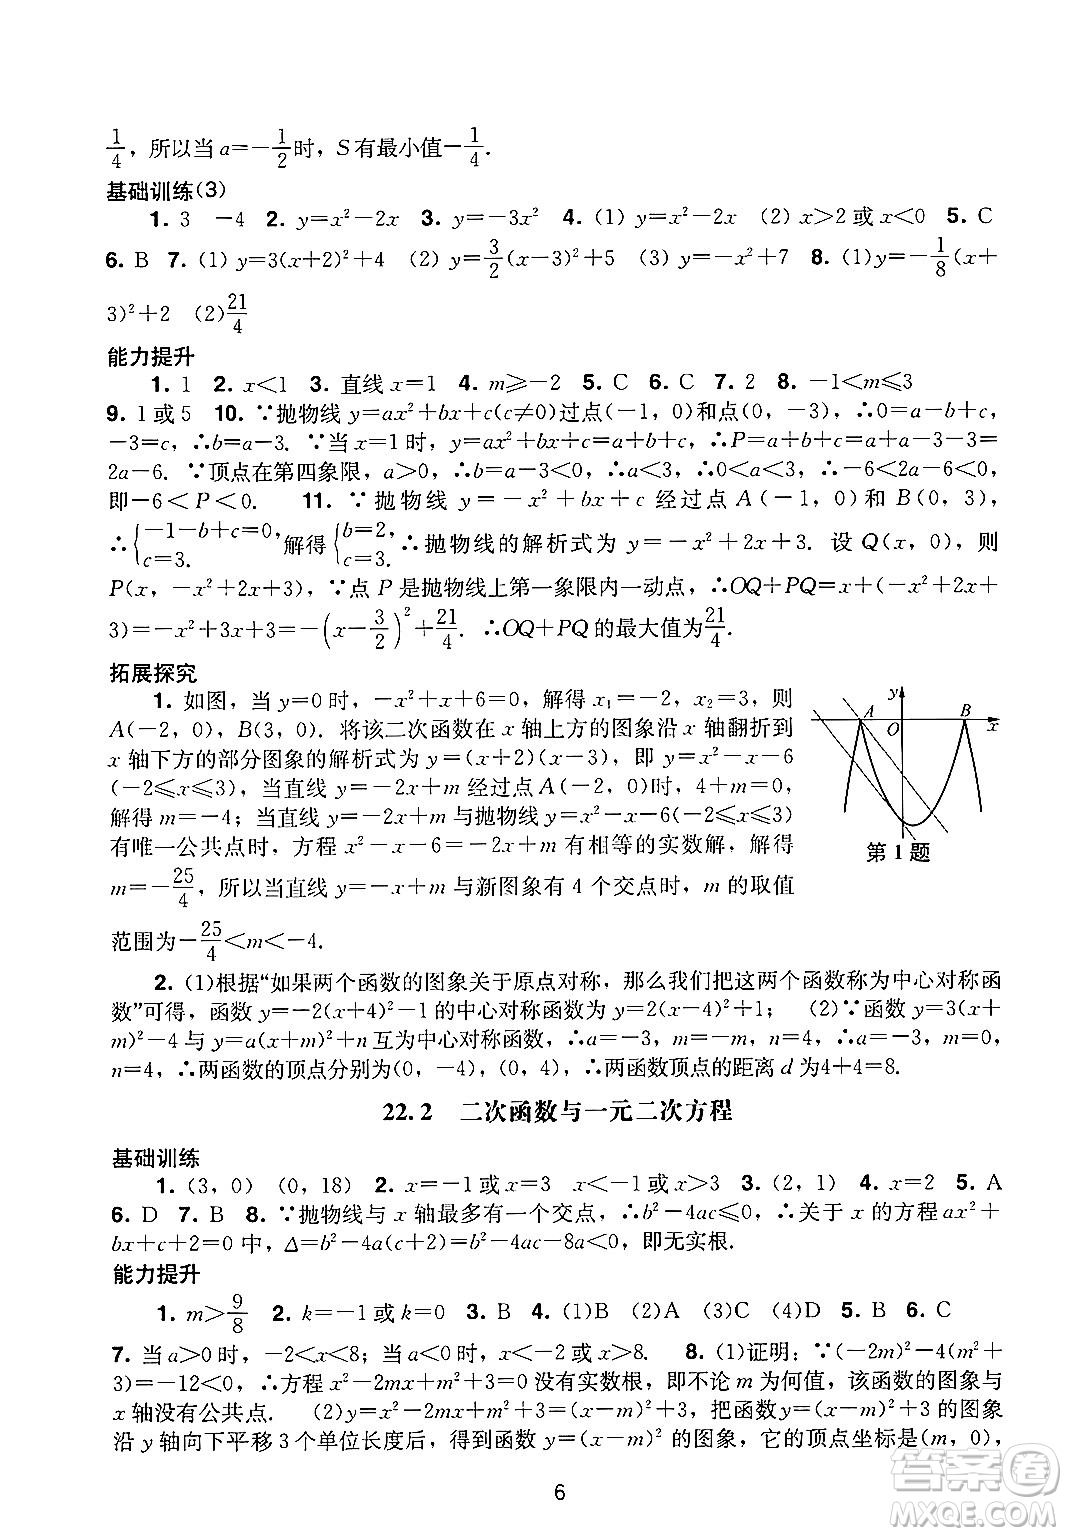 1/4，所以当 a=-1/2时，S有最小值-1/4.
基础训练(3)
1. 3 -4 2. y=x²-2x 3. y=-3x² 4. (1) y=x²-2x (2) x>2或x<0 5. C
6. B 7. (1) y=3(x+2)²+4 (2) y=3/2(x-3)²+5 (3) y=-x²+7 8. (1)y=-1/8(x+
3)²+2 (2)21/4
能力提升
1. 1 2. x<1 3. 直线x=1 4. m≥-2 5. C 6. C 7. 2 8. -1<m≤3
9. 1或5 10. ∵抛物线y=ax²+bx+c(c≠0)过点(-1，0)和点(0，-3)，∴0=a-b+c，
-3=c，∴b=a-3. ∵当x=1时，y=ax²+bx+c=a+b+c，∴P=a+b+c=a+a-3-3=
2a-6. ∵顶点在第四象限，a>0，∴b=a-3<0，∴a<3，∴0<a<3，∴-6<2a-6<0，
即-6<P<0. 11. ∵抛物线y=-x²+bx+c经过点A(-1，0)和B(0，3)，
∴{-1-b+c=0, c=3. 解得{b=2, c=3. ∴抛物线的解析式为y=-x²+2x+3. 设Q(x，0)，则
P(x，-x²+2x+3)，∵点P是抛物线上第一象限内一动点，∴OQ+PQ=x+(-x²+2x+
3)=-x²+3x+3=-(x-3/2)²+21/4. ∴OQ+PQ的最大值为21/4.
拓展探究
1. 如图，当y=0时，-x²+x+6=0，解得x₁=-2，x₂=3，则
A(-2，0)，B(3，0). 将该二次函数在x轴上方的图象沿x轴翻折到
x轴下方的部分图象的解析式为y=(x+2)(x-3)，即y=x²-x-6
(-2≤x≤3)，当直线y=-x+m经过点A(-2，0)时，2+m=0，
解得m=-4；当直线y=-2x+m与抛物线y=x²-x-6(-2≤x≤3)
有唯一公共点时，方程x²-x-6=-2x+m有相等的实数解，解得
m=-25/4，所以当直线y=-x+m与新图象有4个交点时，m的取值
范围为-25/4<m<-4.
y
A
O
B
x
第1题
2. (1)根据“如果两个函数的图象关于原点对称，那么我们把这两个函数称为中心对称函
数”可得，函数y=-2(x+4)²-1的中心对称函数为y=2(x-4)²+1； (2)∵函数y=3(x+
m)²-4与y=a(x-1)²+n互为中心对称函数，∴a=-3，m=-m，n=4，∴a=-3，m=0，
n=4，∴两函数的顶点分别为(0，-4)，(0，4)，∴两函数顶点的距离d为4+4=8.
22.2 二次函数与一元二次方程
基础训练
1. (3，0) (0，18) 2. x=-1或x=3 x<-1或x>3 3. (2，1) 4. x=2 5. A
6. D 7. B 8. ∵抛物线与x轴最多有一个交点，∴b²-4ac≤0，∴关于x的方程ax²+
bx+c+2=0中，Δ=b²-4a(c+2)=b²-4ac-8a<0，即无实根.
能力提升
1. m>9/8 2. k=-1或k=0 3. B 4. (1)B (2)A (3)C (4)D 5. B 6. C
7. 当a>0时，-2<x<8；当a<0时，x<-2或x>8. 8. (1)证明：∵(-2m)²-4(m²+
3)=-12<0，∴方程x²-2mx+m²+3=0没有实数根，即不论m为何值，该函数的图象与
x轴没有公共点. (2)y=x²-2mx+m²+3=(x-m)²+3，把函数y=(x-m)²+3的图象
沿y轴向下平移3个单位长度后，得到函数y=(x-m)²的图象，它的顶点坐标是(m，0)，
6
答案圈
MXQE.COM